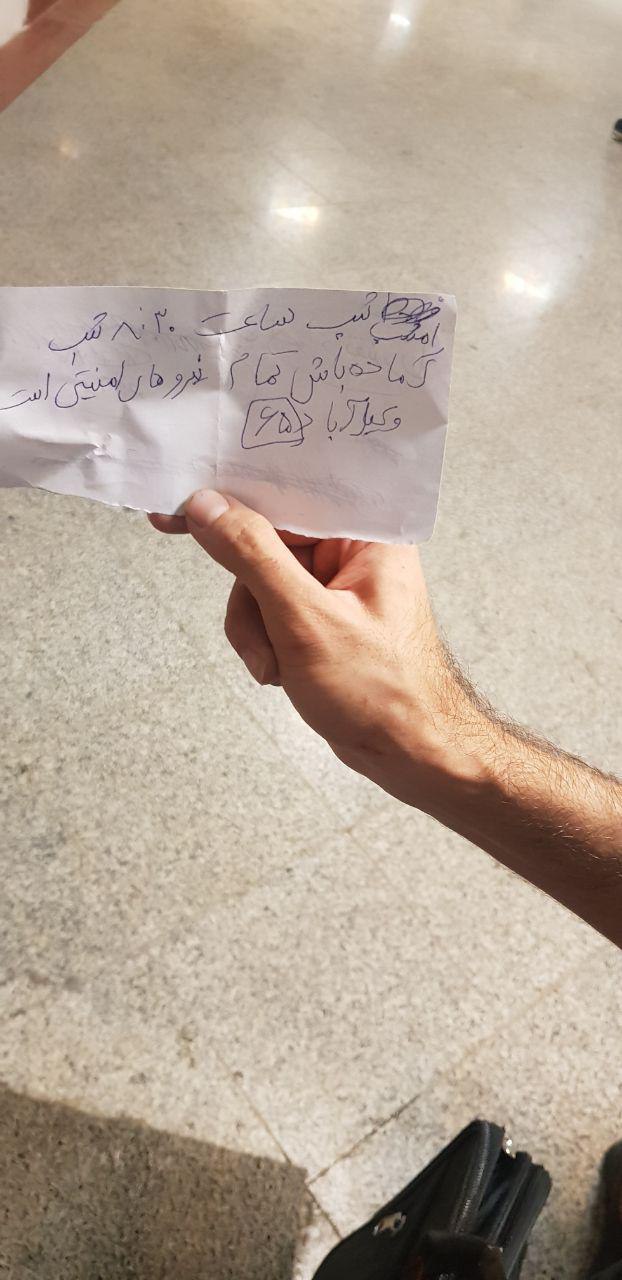 امشب شب ساعت ۸:۳۰ شب
آماده باش تمام نیروهای امنیتی است
وکیل آباد ۶۵